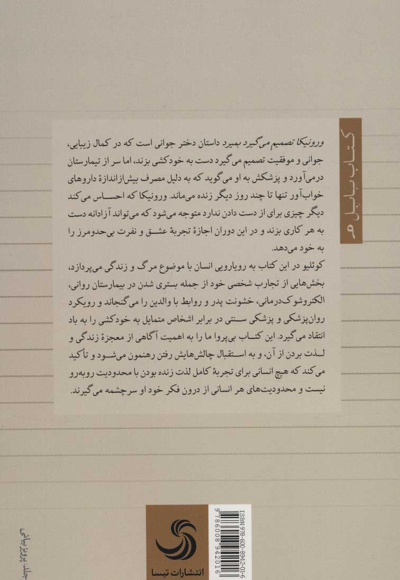 کتاب بابل
ورونیکا تصمیم می‌گیرد بمیرد داستان دختر جوانی است که در کمال زیبایی،
جوانی و موفقیت تصمیم می‌گیرد دست به خودکشی بزند، اما سر از تیمارستان
درمی‌آورد و پزشکش به او می‌گوید که به دلیل مصرف بیش‌ازاندازهٔ داروهای
خواب‌آور تنها تا چند روز دیگر زنده می‌ماند. ورونیکا که احساس می‌کند
دیگر چیزی برای از دست دادن ندارد متوجه می‌شود که می‌تواند آزادانه دست
به هر کاری بزند و در این دوران اجازهٔ تجربهٔ عشق و نفرت بی‌حدومرز را
به خود می‌دهد.
کوئلیو در این کتاب به رویارویی انسان با موضوع مرگ و زندگی می‌پردازد،
بخش‌هایی از تجارب شخصی خود از جمله بستری شدن در بیمارستان روانی،
الکتروشوک‌درمانی، خشونت پدر و روابط با والدین را می‌گنجاند و رویکرد
روان‌پزشکی و پزشکی سنتی در برابر اشخاص متمایل به خودکشی را به باد
انتقاد می‌گیرد. این کتاب بی‌پروا ما را به اهمیت آگاهی از معجزهٔ زندگی و
لذت بردن از آن، و به استقبال چالش‌هایش رفتن رهنمون می‌شود و تأکید
می‌کند که هیچ انسانی برای تجربهٔ کامل لذت زنده بودن با محدودیت روبه‌رو
نیست و محدودیت‌های هر انسانی از درون فکر خود او سرچشمه می‌گیرند.
انتشارات تیسا
ISBN 978-600-8942-01-6
9786008942016
جلد: پرویز بیانی